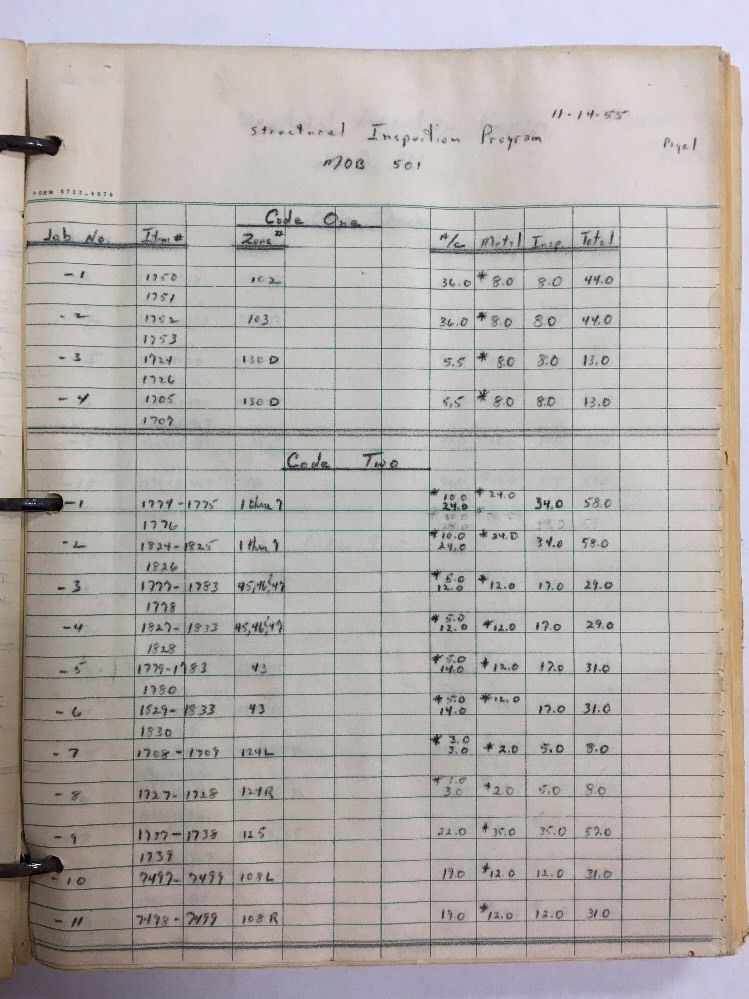 11-14-55
Structural Inspection Program Page 1
MOB 501
FORM 8722-4070
Code One
Job No. Item # Zone # A/C Metal Insp. Total
-1 1750 102 36.0 *8.0 8.0 44.0
1751
-2 1752 103 36.0 *8.0 8.0 44.0
1753
-3 1724 130 D 5.5 *8.0 8.0 13.0
1726
-4 1705 130 D 5.5 *8.0 8.0 13.0
1707
Code Two
-1 1774-1775 1 thru 7 *10.0 *24.0 34.0 58.0
24.0
1776
-2 1824-1825 1 thru 7 *10.0 *24.0 34.0 58.0
24.0
1826
-3 1777-1783 45,46,47 *5.0 *12.0 17.0 29.0
12.0
1778
-4 1827-1833 45,46,47 *5.0 *12.0 17.0 29.0
12.0
1828
-5 1779-1783 43 *5.0 *12.0 17.0 31.0
14.0
1780
-6 1829-1833 43 *5.0 *12.0 17.0 31.0
14.0
1830
-7 1708-1709 124L *3.0 *2.0 5.0 8.0
3.0
-8 1727-1728 124R *3.0 *2.0 5.0 8.0
3.0
-9 1737-1738 125 22.0 *35.0 35.0 57.0
1739
-10 7497-7499 108L 19.0 *12.0 12.0 31.0
-11 7498-7499 108R 19.0 *12.0 12.0 31.0